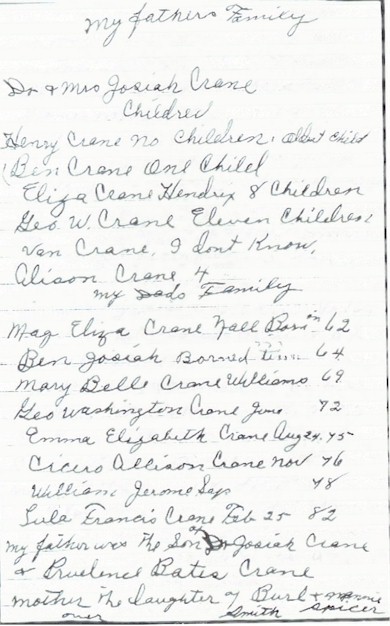 My fathers Family
Dr & Mrs Josiah Crane
Children
Henry Crane no Children, oldest child
(Ben Crane One Child
Eliza Crane Hendrix 8 Children
Geo. W. Crane Eleven Children
Van Crane, I dont Know,
Alison Crane 4
my Dads Family
Mag Eliza Crane Nall Born in 62
Ben Josiah Borned 64
Mary Belle Crane Williams 69
Geo Washington Crane June 72
Emma Elizabeth Crane Aug 24. 75
Cicero Allison Crane Nov 76
William Jerome Sep 78
Lula Francis Crane Feb 25 82
My father was The Son of Dr Josiah Crane
& Prudence Bates Crane
mother The daughter of Burl &
Smith Spicer
over